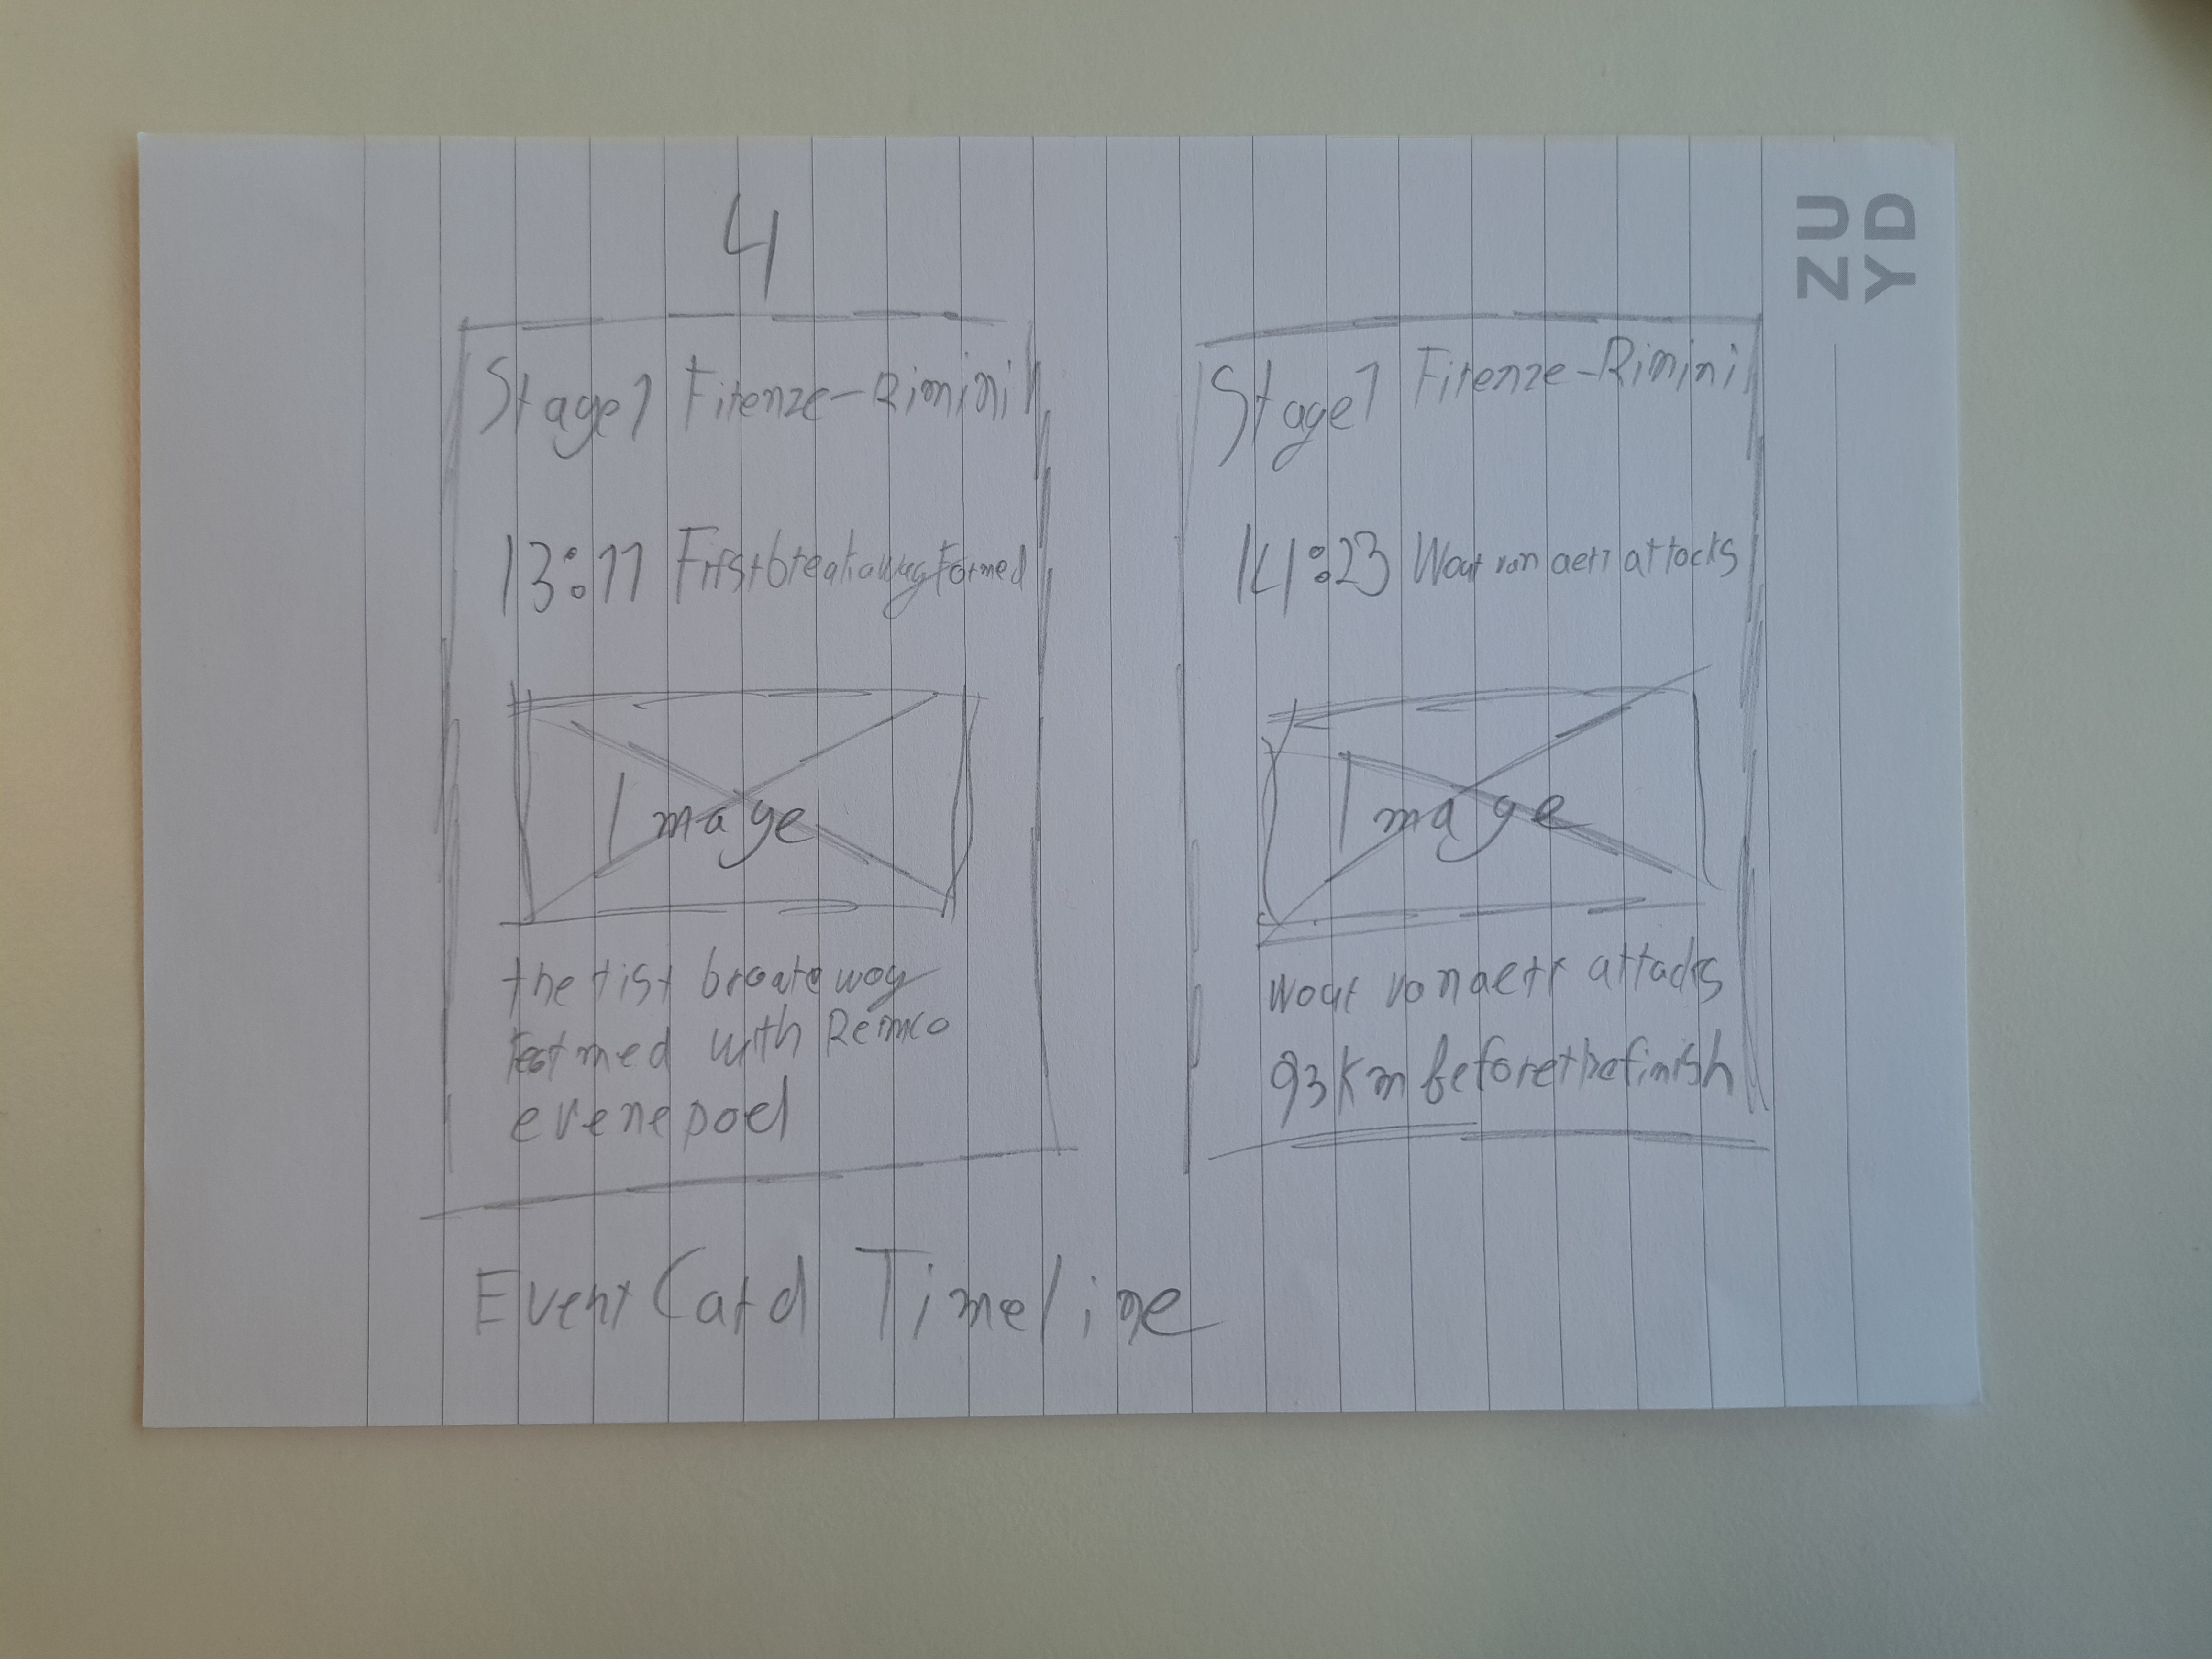 4
ZU
YD
Stage 1 Firenze-Rimini
13:11 First breakaway formed
Image
the first breakaway
formed with Remco
evenepoel
Stage 1 Firenze-Rimini
14:23 Wout van aert attacks
Image
Wout van aert attacks
93 Km before the finish
Event Card Timeline